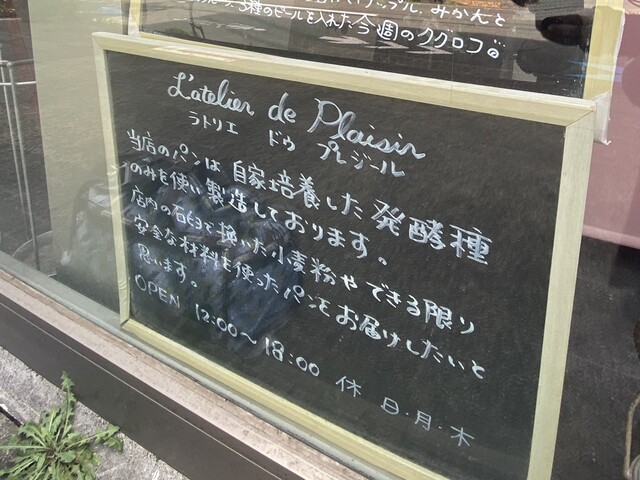 ップル、みかんと
3種のピールを入れた今週のクグロフ。
L'atelier de Plaisir
ラトリエ ドゥ プレジール
当店のパンは自家培養した発酵種
のみを使い製造しております。
店内の石臼で挽いた小麦粉やできる限り
安全な材料を使ったパンをお届けしたいと
思います。
OPEN 12:00～18:00 休 日・月・木